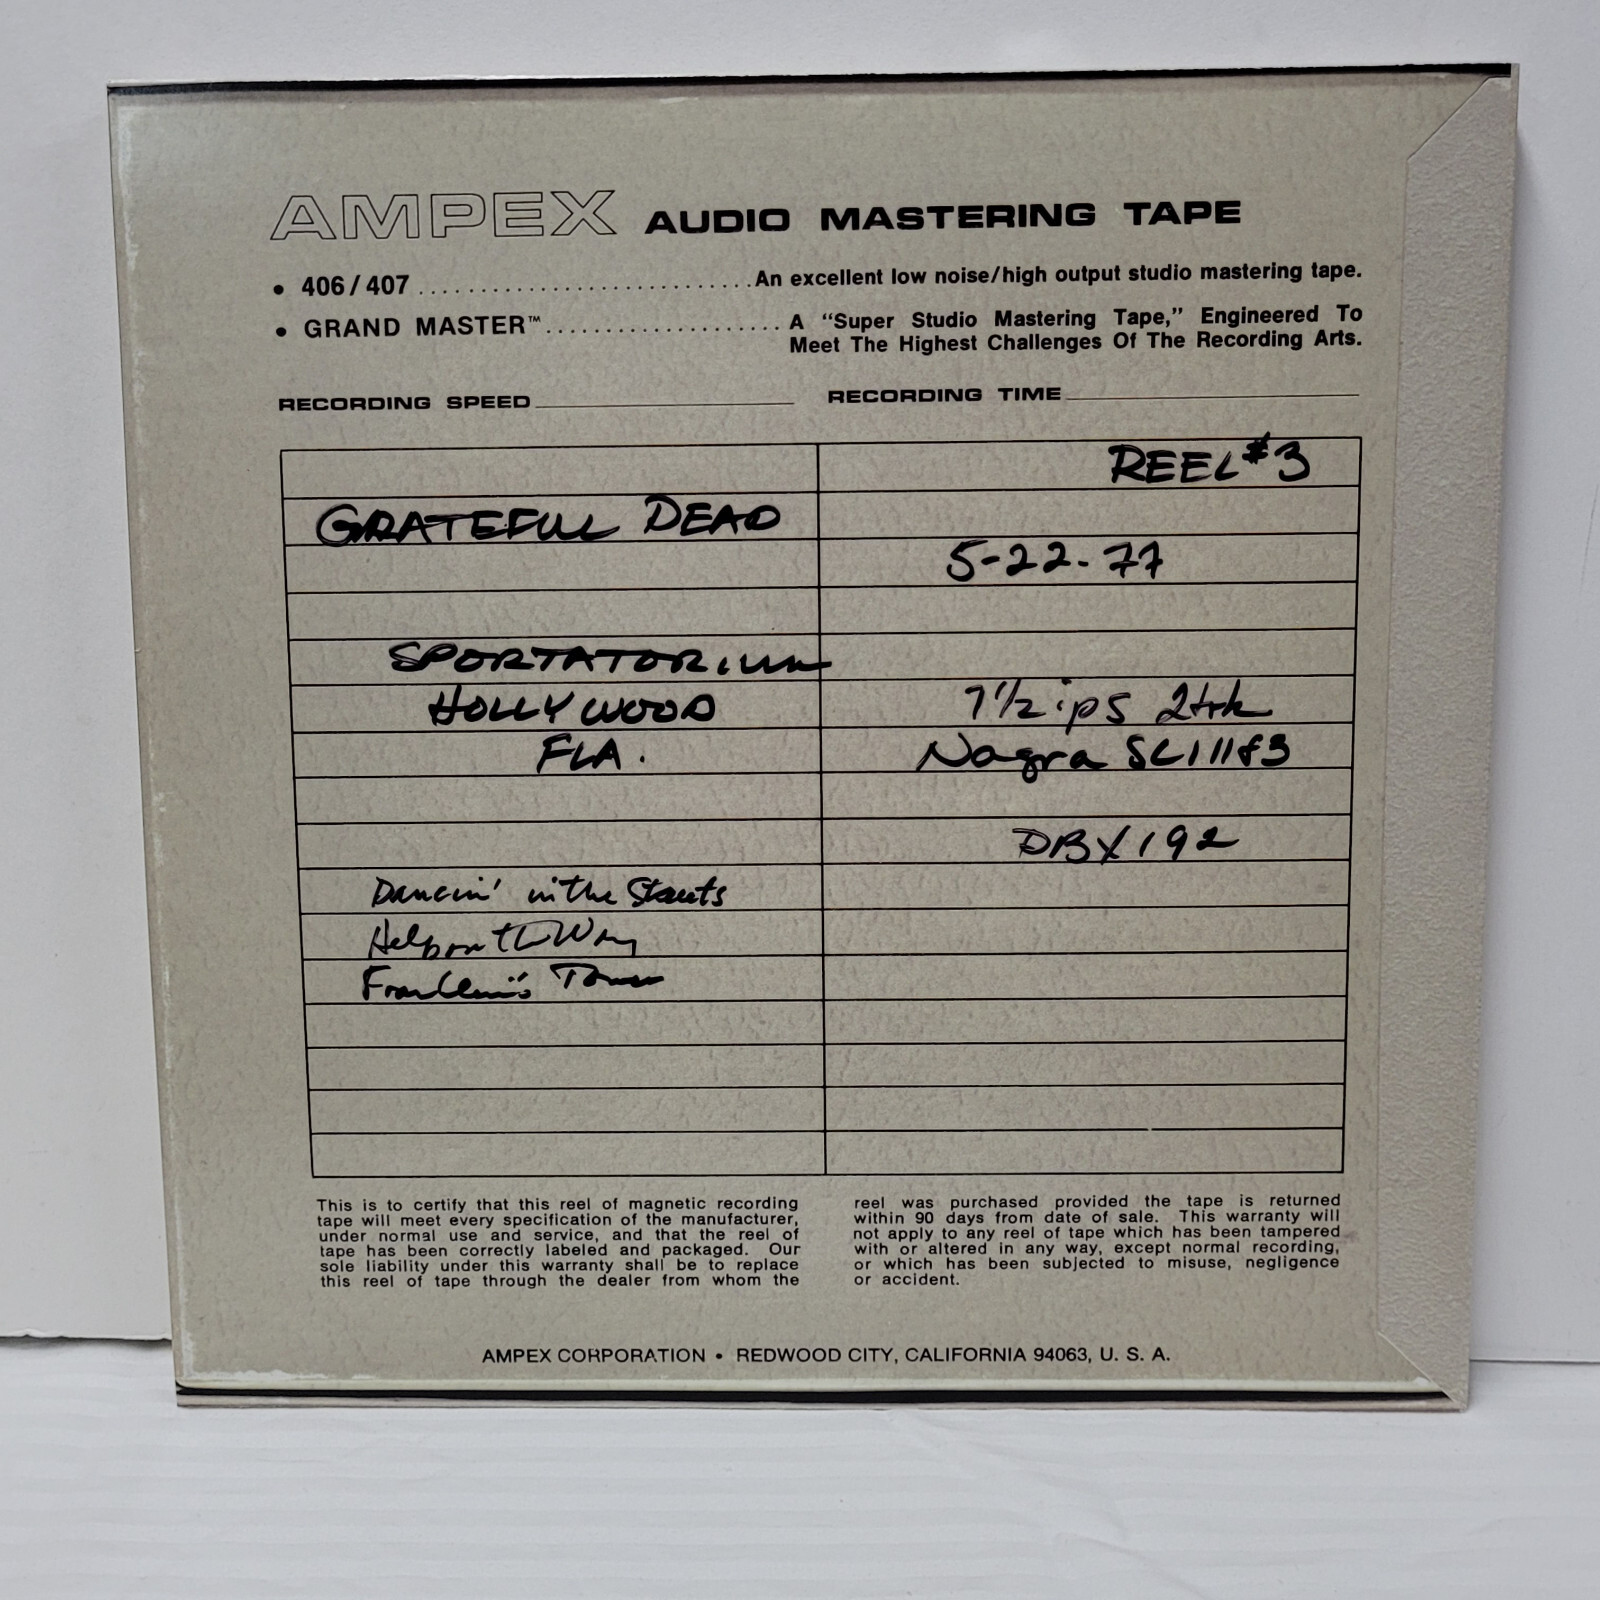 AMPEX AUDIO MASTERING TAPE
• 406/407 ............................ An excellent low noise/high output studio mastering tape.
• GRAND MASTER™ .................... A "Super Studio Mastering Tape," Engineered To
Meet The Highest Challenges Of The Recording Arts.
RECORDING SPEED RECORDING TIME
REEL #3
GRATEFUL DEAD
5-22-77
SPORTATORIUM
HOLLYWOOD 7 1/2 ips 2trk
FLA. Nagra
DBX 192
Dancin' in the Streets
Help on the Way
Franklin's Tower
This is to certify that this reel of magnetic recording
tape will meet every specification of the manufacturer,
under normal use and service, and that the reel of
tape has been correctly labeled and packaged. Our
sole liability under this warranty shall be to replace
this reel of tape through the dealer from whom the
reel was purchased provided the tape is returned
within 90 days from date of sale. This warranty will
not apply to any reel of tape which has been tampered
with or altered in any way, except normal recording,
or which has been subjected to misuse, negligence
or accident.
AMPEX CORPORATION • REDWOOD CITY, CALIFORNIA 94063, U. S. A.